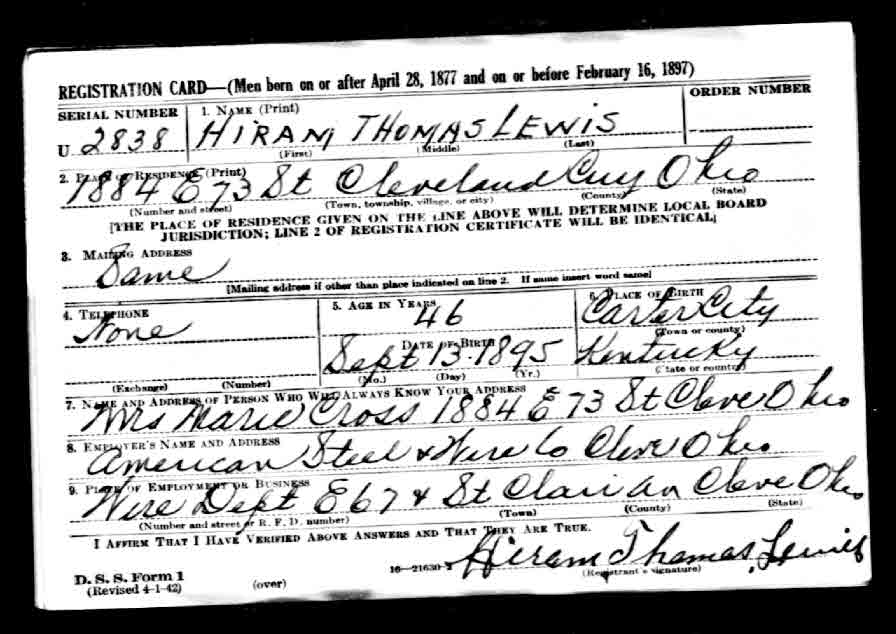 REGISTRATION CARD—(Men born on or after April 28, 1877 and on or before February 16, 1897)
SERIAL NUMBER 1. NAME (Print) ORDER NUMBER
U 2838 HIRAM THOMAS LEWIS
(First) (Middle) (Last)
2. PLACE OF RESIDENCE (Print)
1884 E 73 St Cleveland Cuy Ohio
(Number and street) (Town, township, village, or city) (County) (State)
[THE PLACE OF RESIDENCE GIVEN ON THE LINE ABOVE WILL DETERMINE LOCAL BOARD
JURISDICTION; LINE 2 OF REGISTRATION CERTIFICATE WILL BE IDENTICAL]
3. MAILING ADDRESS
Same
[Mailing address if other than place indicated on line 2. If same insert word same]
4. TELEPHONE 5. AGE IN YEARS 6. PLACE OF BIRTH
None 46 Carter City
DATE OF BIRTH (Town or county)
Sept 13-1895 Kentucky
(Exchange) (Number) (Mo.) (Day) (Yr.) (State or country)
7. NAME AND ADDRESS OF PERSON WHO WILL ALWAYS KNOW YOUR ADDRESS
Mrs Marie Cross 1884 E 73 St Cleve Ohio
8. EMPLOYER'S NAME AND ADDRESS
American Steel & Wire Co Cleve Ohio
9. PLACE OF EMPLOYMENT OR BUSINESS
Wire Dept E 67 & St Clair Av Cleve Ohio
(Number and street or R. F. D. number) (Town) (County) (State)
I AFFIRM THAT I HAVE VERIFIED ABOVE ANSWERS AND THAT THEY ARE TRUE.
Hiram Thomas Lewis
D. S. S. Form 1 16—21630-2 (Registrant's signature)
(Revised 4-1-42) (over)